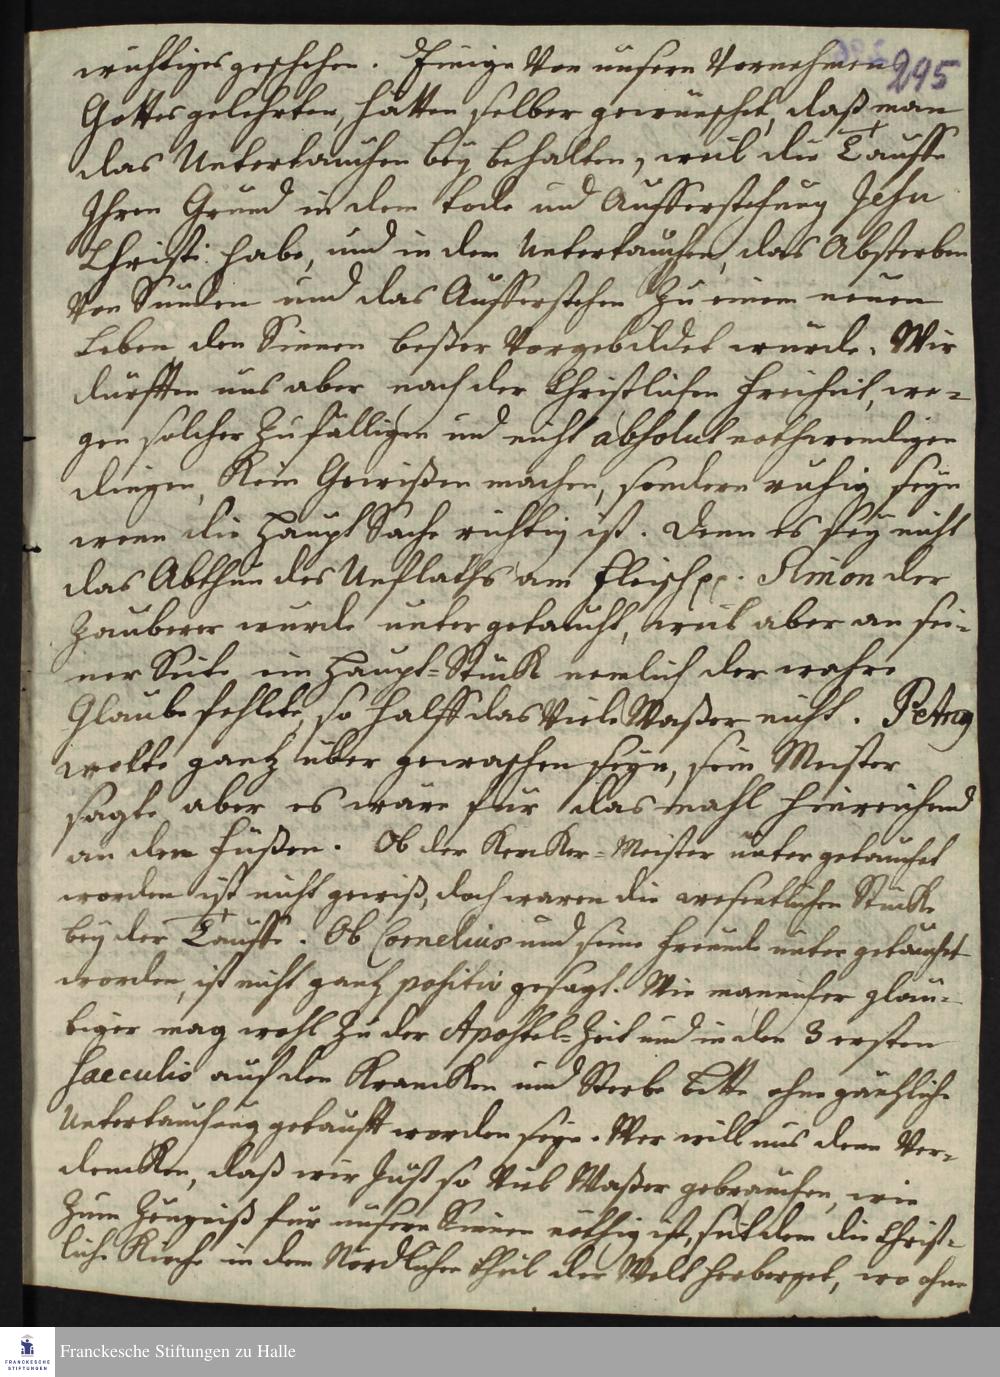 wichtiges geschehen. Einige von unsern Vornehmen 295
Gottes gelehrten, hätten selber gewünschet, daß man
das Untertauchen bey behalten, weil die Tauffe
Ihren Grund in dem Tode und Aufferstehung Jesu
Christi habe, und in dem Untertauchen, das Absterben
von Sünden und das Aufferstehen zu einem neuen
Leben den Sinnen beßer vorgebildet würde. Wir
dürfften uns aber nach der Christlichen Freiheit, we-
gen solcher zufälligen und nicht absolut nothwendigen
dingen, Kein Gewißen machen, sondern ruhig seyn
wenn die Haupt Sache richtig ist. Denn es sey nicht
das Abthun des Unflaths am Fleisch pp. Simon der
Zauberer wurde untergetaucht, weil aber an sei-
ner Seite ein Haupt-Stück nemlich der wahre
Glaube fehlete, so halff das viele Waßer nicht. Petrus
wolte gantz über gewaschen seyn, sein Meister
sagte aber es wäre für das mahl hinreichend
an den Füßen. Ob der Kercker-Meister untergetauchet
worden ist nicht gewiß, doch waren die wesentlichen Stücke
bey der Tauffe. Ob Cornelius und seine Freunde untergetauchet
worden, ist nicht gantz positiv gesagt. Wie mannicher glau-
biger mag wohl zu der Apostel-Zeit und in den 3 ersten
Saeculis auf den Krancken und Sterbe Bette ohne gäntzliche
Untertauchung getaufft worden seyn. Wer will uns denn ver-
dencken, daß wir Just so viel Waßer gebrauchen, wie
zum Zeugniß für unsern Sinnen nöthig ist, seitdem die Christ-
liche Kirche in dem Nordlichen theil der Welt herberget, wo ohne
FRANCKESCHE
STIFTUNGEN
Franckesche Stiftungen zu Halle